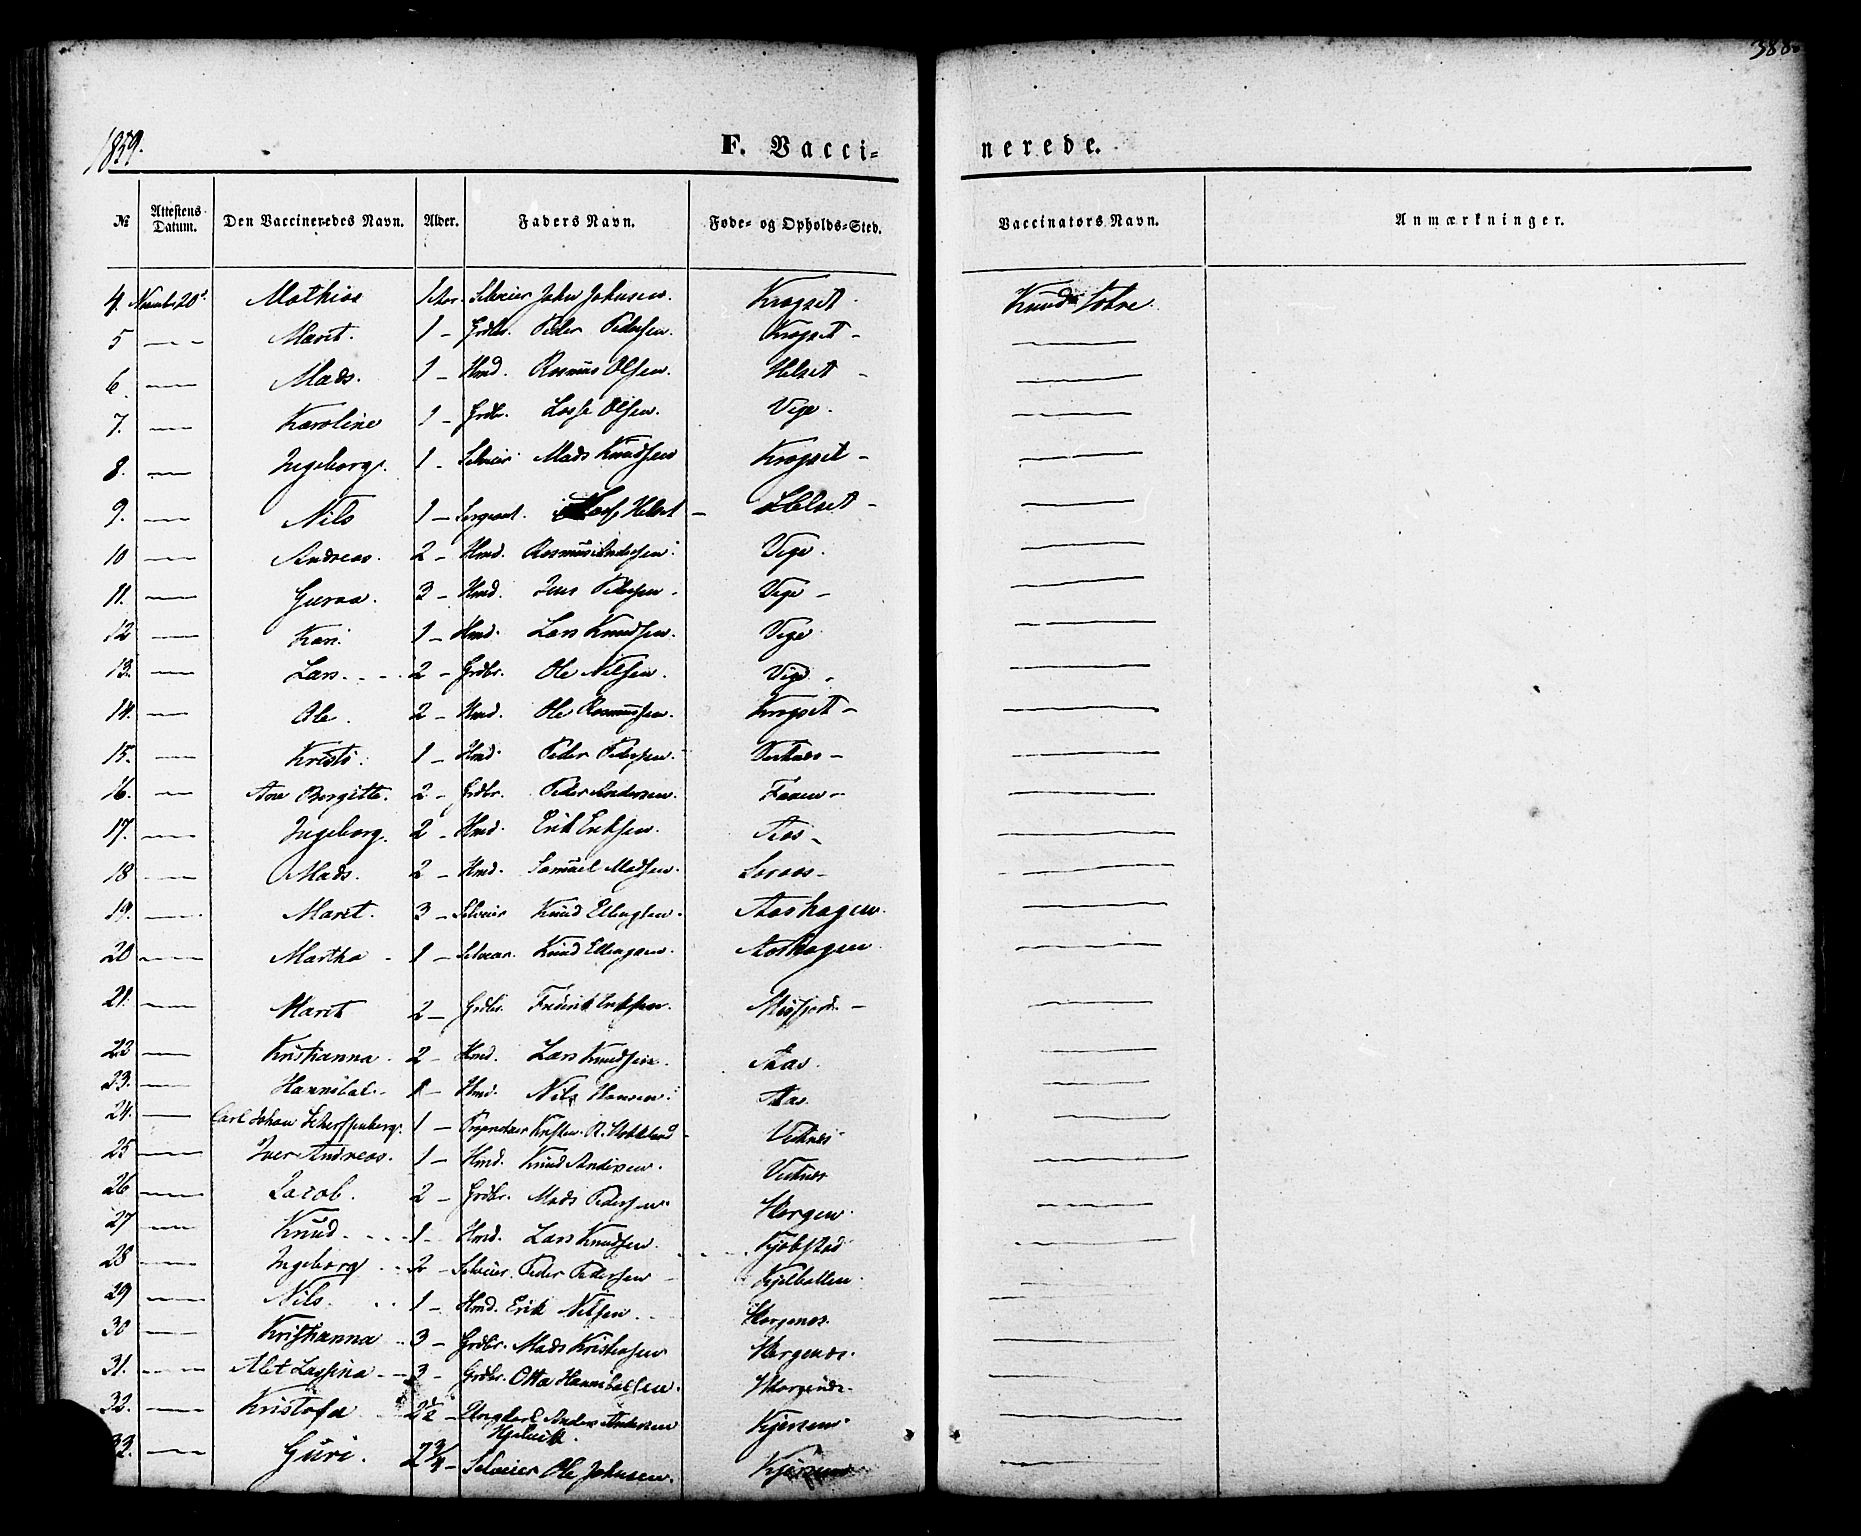 1859.
F. Vacci-
nerede.
№ Attestens Datum. Den Vaccineredes Navn. Alder. Faders Navn. Føde- og Opholds-Sted. Vaccinators Navn. Anmærkninger.
4. Novmbr 20d. Mathias 1 Aar. Selveier John Johnsen. Krogset. Knud
5 — Marit. 1 — Grdbr. Peder Pedersen. Krogset —
6. — Mads. 1 — Hmd. Rasmus Olsen. Helset —
7. — Karoline 1 — Grdbr. Lasse Olsen. Vige.
8. — Ingeborg. 1 — Selveier Mads Knudsen Krogset —
9. — Nils 1 — Sergeant. Helset — Helset —
10 — Andreas. 2 — Hmd. Rasmus Andersen Vige.
11. — Guroa. 3 — Hmd. Jens Pedersen Vige —
12 — Kari 1 — Hmd. Lars Knudsen. Vige
13. — Lars. 2 — Grdbr. Ole Nilsen. Vige.
14. — Ole. 2 — Hmd. Ole Rasmussen. Krogset —
15. — Kristi. 1 — Hmd. Peder Pedersen. Vestnes —
16. — Ane Bergitte. 2 — Grdbr. Peder Andersen.
17. — Ingeborg. 2 — Hmd. Erik Eriksen. Aas —
18 — Mads. 2 — Hmd. Samuel Madsen.
19. — Marit. 3 — Selveier Knud Ellingsen. Aashagen.
20 — Martha — 1 — Selveier. Knud Ellingsen. Aashagen
21. — Marit 2 — Grdbr. Fredrik Eriksen. Misfjord. —
22 — Kristianna. 2 — Hmd. Lars Knudsen. Aas.
23. — Hannibal. 1 — Hmd. Nils Hansen. Aas.
24. — Carl Johan 1 — Proprietær Kristen R. Vestnes
25 — Iver Andreas. 1 — Hmd. Knud Andersen. Vestnes
26 — Jacob. 2 — Grdbr. Mads Pedersen. Horgen.
27 — Knud. 1 — Hmd. Lars Knudsen. Kjøbstad
28 — Ingeborg 2 — Selveier. Peder Pedersen — Kjelbotten.
29 — Nils. 1 — Hmd. Erik Nilsen Horgenes.
30 — Kristianna 3 — Grdbr. Mads Kristiansen Horgenes.
31. — Alet Lassina 3 — Grdbr. Otto Hannibalsen. Horgenes.
32. — Kristofa 2½ — Ungkarl Anders Andersen
Hjelvik.
33. — Guri. 2¾ — Selveier Ole Johnsen.